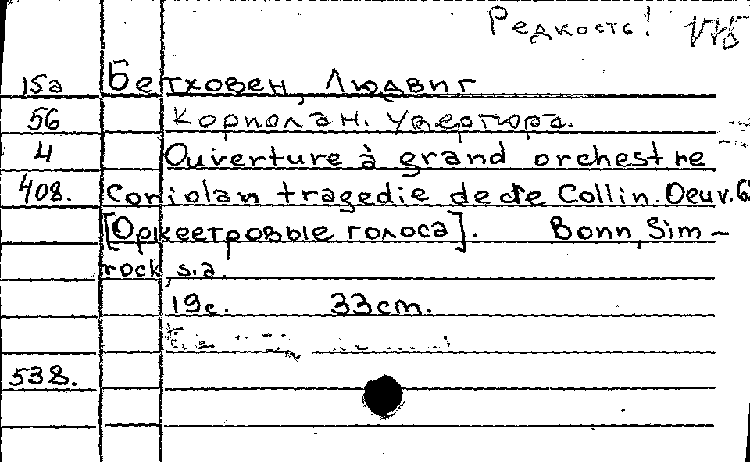 Редкость!
15а Бетховен, Людвиг
56 Кориолан. Увертюра.
Ч Ouverture à grand orchestre
408. Coriolan tragedie de de Collin. Oeuv. 6
[Оркестровые голоса]. Bonn, Sim-
rock, s.a.
19с. 33cm.
538.